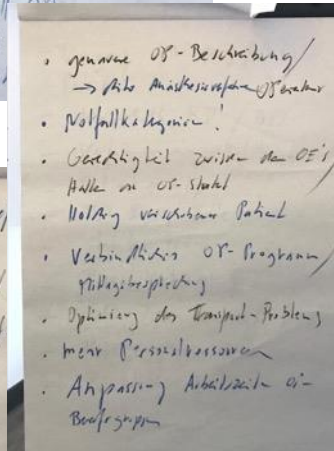 • genauere OP-Beschreibung
→ dito Anästhesieverfahren
• Notfallkategorien!
• Gerechtigkeit zwischen den OE's
• Holding verschobener Patient
• Verbindliches OP-Programm
Mittagsbesprechung
• Optimierung des Transport-Problems
• mehr Personalressourcen
• Anpassung Arbeitszeiten
Berufsgruppen